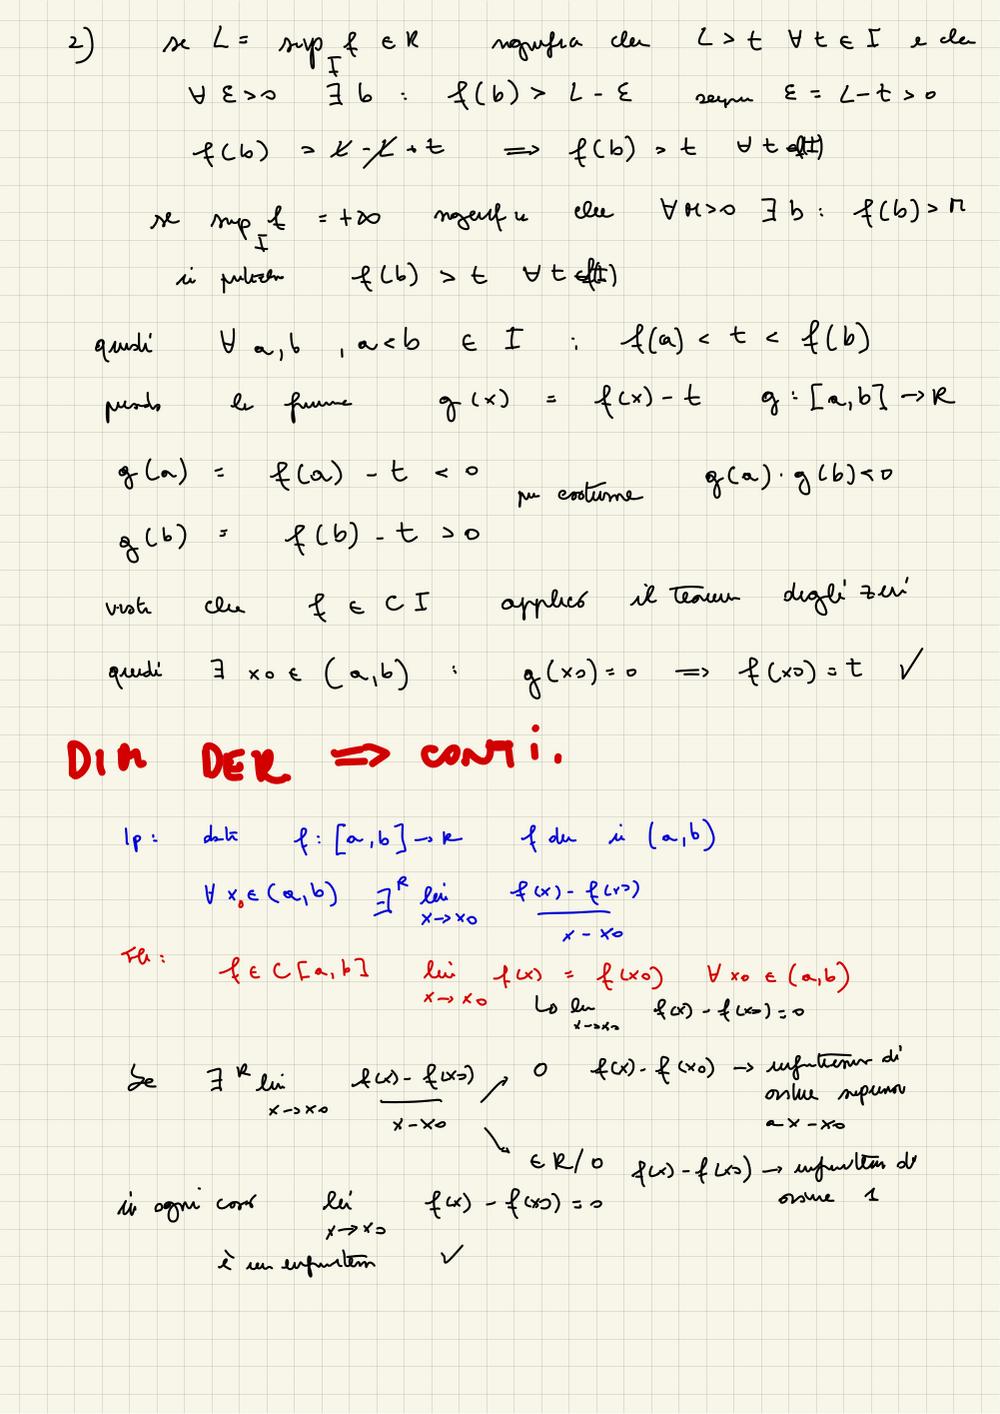 2) se L = sup f ∈ R significa che L > t ∀ t ∈ I e che
I
∀ ε>0 ∃ b : f(b) > L - ε scegliamo ε = L-t > 0
f(b) > L - L + t ⟹ f(b) > t ∀ t
se sup f = +∞ significa che ∀ M>0 ∃ b : f(b) > M
I
in particolare f(b) > t ∀ t
quindi ∀ a,b , a<b ∈ I : f(a) < t < f(b)
prendo la funzione g(x) = f(x) - t g : [a,b] → R
g(a) = f(a) - t < 0
per costruzione g(a) · g(b) < 0
g(b) = f(b) - t > 0
visto che f ∈ C I applico il teorema degli zeri
quindi ∃ x0 ∈ (a,b) : g(x0) = 0 ⟹ f(x0) = t ✓
DIM DER ⟹ CONTI.
Ip: data f : [a,b] → R f der in (a,b)
∀ x0 ∈ (a,b) ∃^R lim f(x) - f(x0)
x→x0 x - x0
Th: f ∈ C[a,b] lim f(x) = f(x0) ∀ x0 ∈ (a,b)
x→x0
↳ lim f(x) - f(x0) = 0
x→x0
Se ∃^R lim f(x) - f(x0) ↗ 0 f(x) - f(x0) → infinitesimo di
x→x0 x - x0 ordine superiore
a x - x0
↘ ∈ R/0 f(x) - f(x0) → infinitesimo di
ordine 1
in ogni caso lim f(x) - f(x0) = 0
x→x0
è un infinitesimo ✓